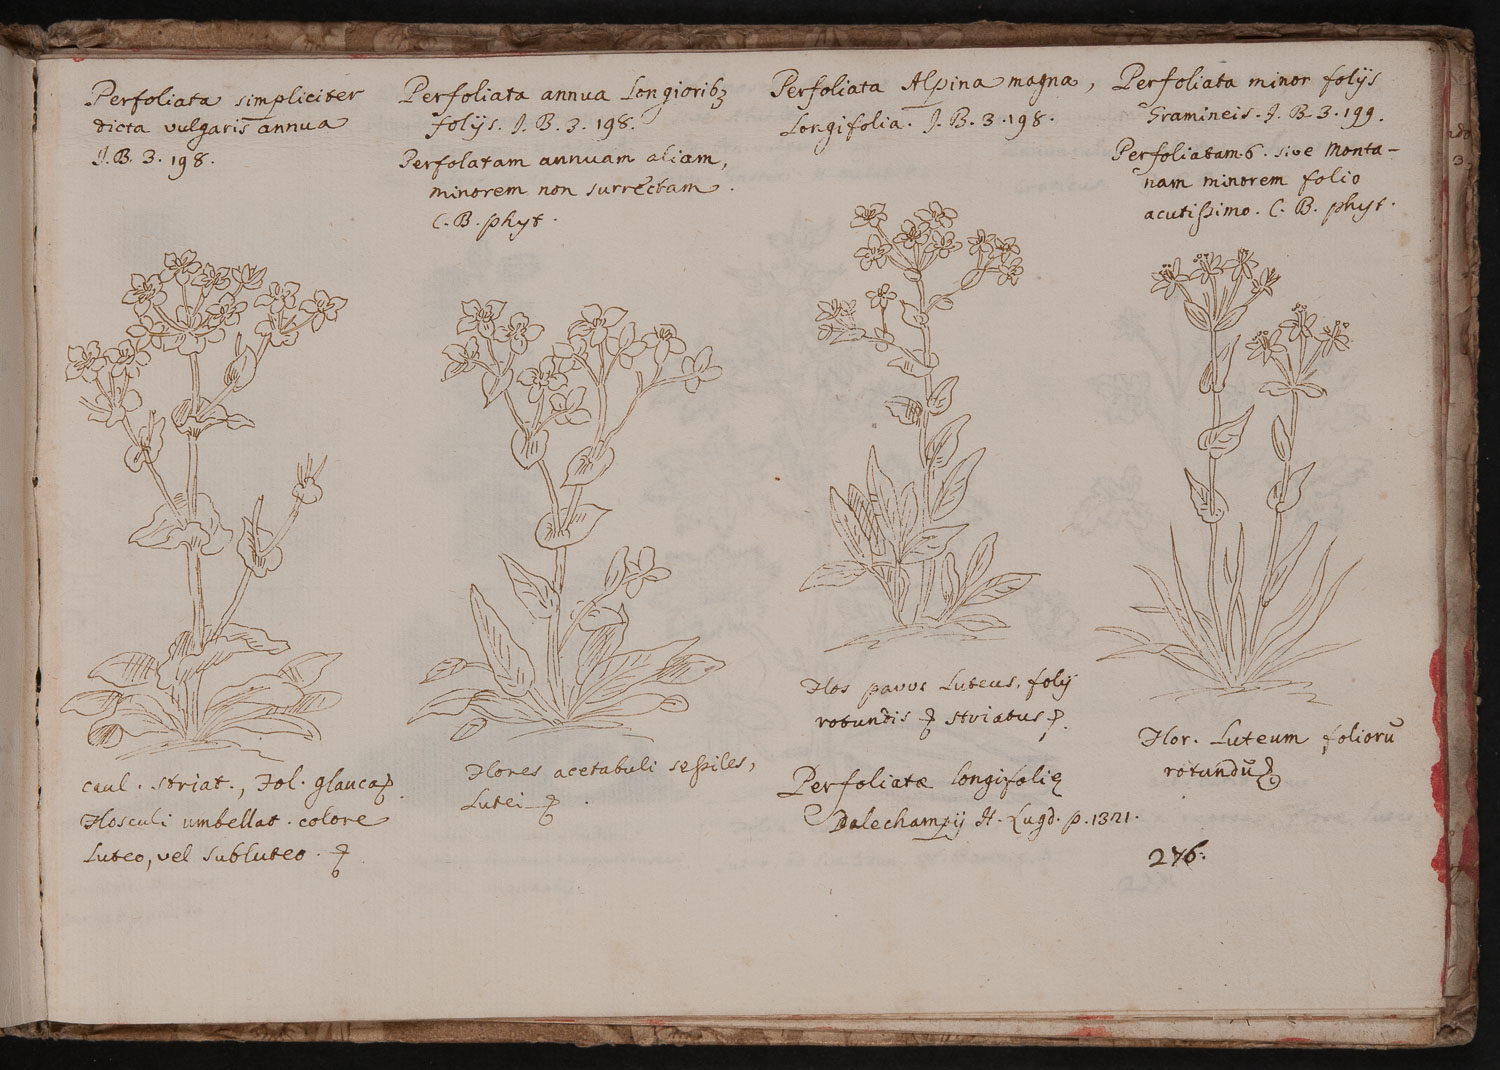 Perfoliata simpliciter
dicta vulgaris annua
J. B. 3. 198.
Perfoliata annua Longioribꝫ
folijs. J. B. 3. 198.
Perfolatam annuam aliam,
minorem non surrectam.
C. B. phyt.
Perfoliata Alpina magna,
Longifolia. J. B. 3. 198.
Perfoliata minor folijs
Gramineis. J. B. 3. 199.
Perfoliatam. 6. sive Monta-
nam minorem folio
acutißimo. C. B. phyt.
caul. striat., Fol. glauca
Flosculi umbellat. colore
Luteo, vel subluteo.
Flores acetabuli seßiles,
Lutei
Flos Luteus, folij
rotundis striatus
Perfoliatæ longifolię
Dalechampij H. Lugd. p. 1321.
Flor. Luteum foliorū
rotundū
276.